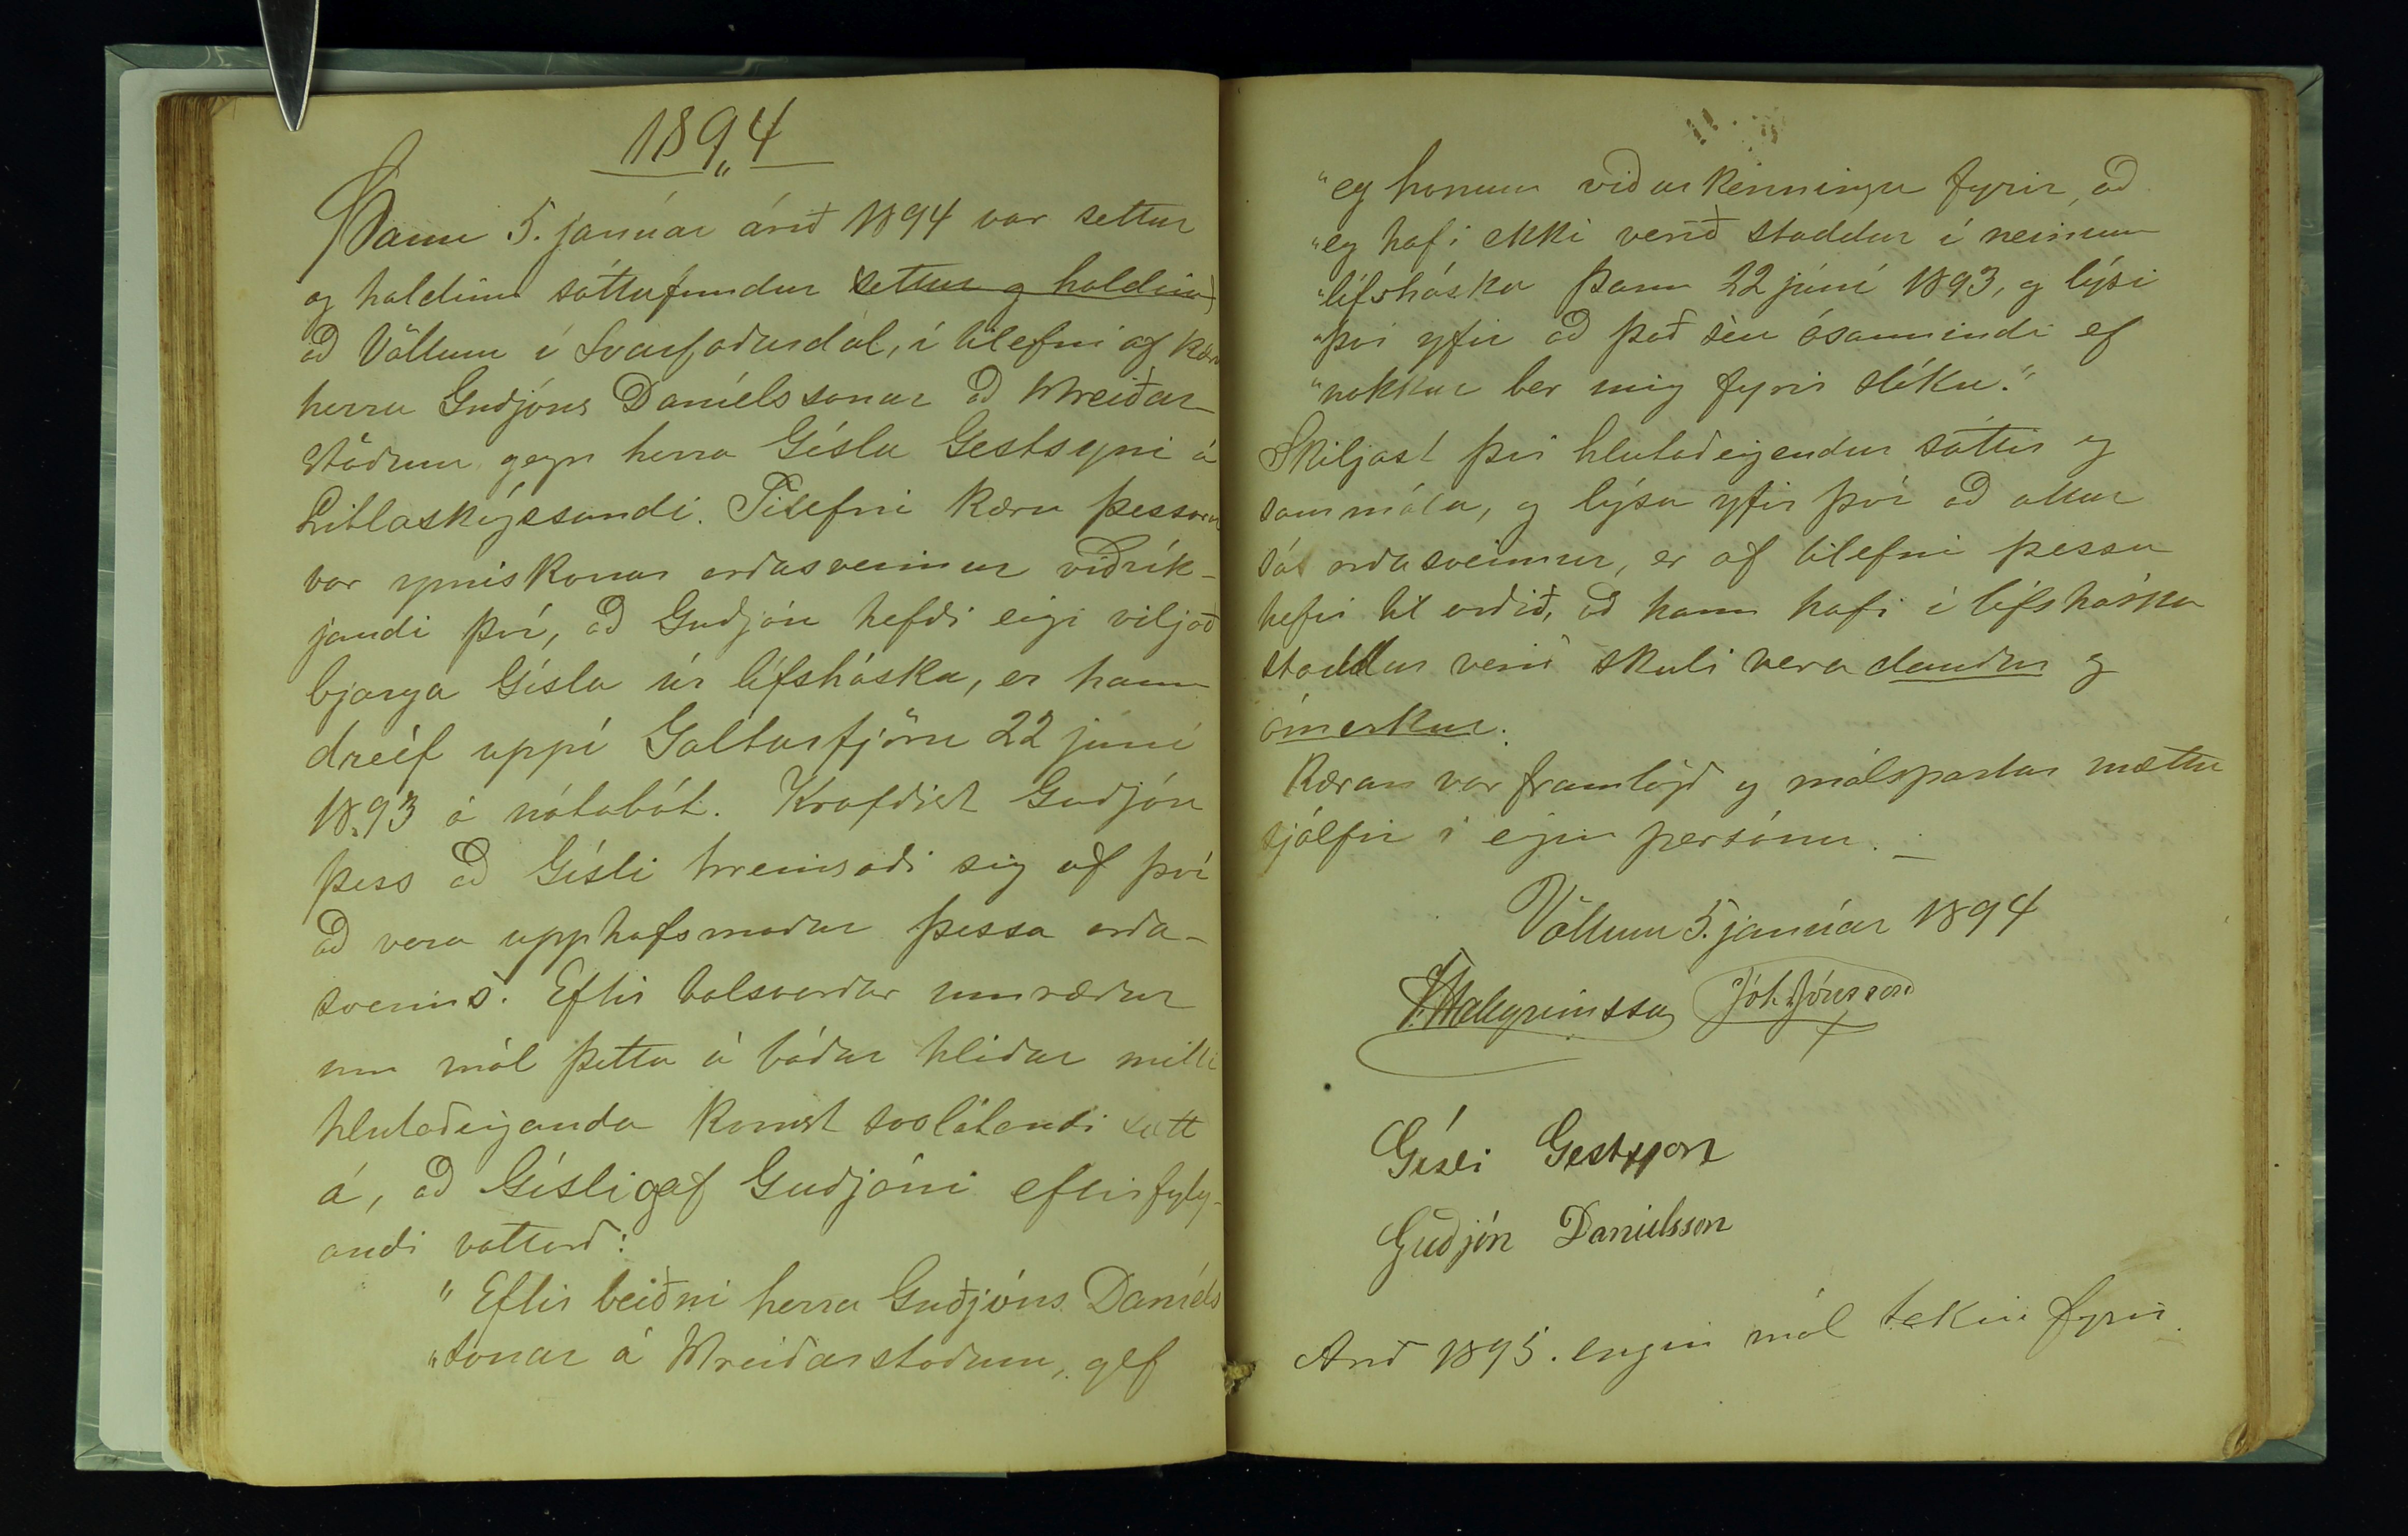 1894
Þann 5. janúar árið 1894 var settur
og haldinn sáttafundur settur og haldinn
að Völlum í Svarfaðardal, í tilefni af kæru
herra Guðjóns Daníelssonar að Hreiðar-
stöðum gegn herra Gísla Gestsyni á
Litlaskógssandi. Tilefni kæru þessarar
var ymiskonar orðasveimur viðvík-
jandi því, að Guðjón hefði eigi viljað
bjarga Gísla úr lífsháska, er hann
dreif uppí Galtarfjöru 22 júní
1893 á nótabát. Krafðist Guðjón
þess að Gísli hreinsaði sig af því
að vera upphafsmaður þessa orða-
sveims. Eftir talsverðar umræður
um mál þetta á báðar hliðar milli
hlutaðeiganda komst svolátandi sætt
á, að Gísli gaf Guðjóni eftirfylg-
andi vottorð:
"Eftir beiðni herra Guðjóns Daníels
"sonar á Hreiðarstöðum, gef
"eg honum viðurkenningu fyrir, að
"eg hafi ekki verið staddur í neinum
"lífsháska þann 22 júní 1893, og lýsi
"því yfir að það séu ósannindi ef
"nokkur ber mig fyrir slíku."
Skiljast því hlutaðeigendur sáttir og
sammála, og lýsa yfir því að allur
sá orðasveimur, er af tilefni þessu
hefir til orðið, að hann hafi í lífsháska
staddur verið skuli vera dauður og
ómerkur.
Kæran var framlögð og málspartar mættu
sjálfir í eigin persónu.
Völlum 5. janúar 1894
T. Hallgrímsson Jóh. Jónsson
Gísli Gestsson
Guðjón Daníelsson
Árið 1895. engin mál tekin fyrir.